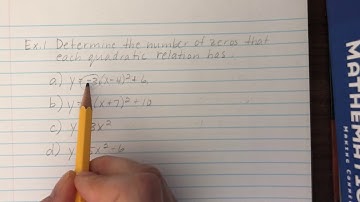 Ex.1 Determine the number of zeros that
each quadratic relation has.
a.) y = -2(x-4)²+6
b.) y = (x+7)²+10
c.) y = 3x²
d.) y = x²-6
MATHEMATICS